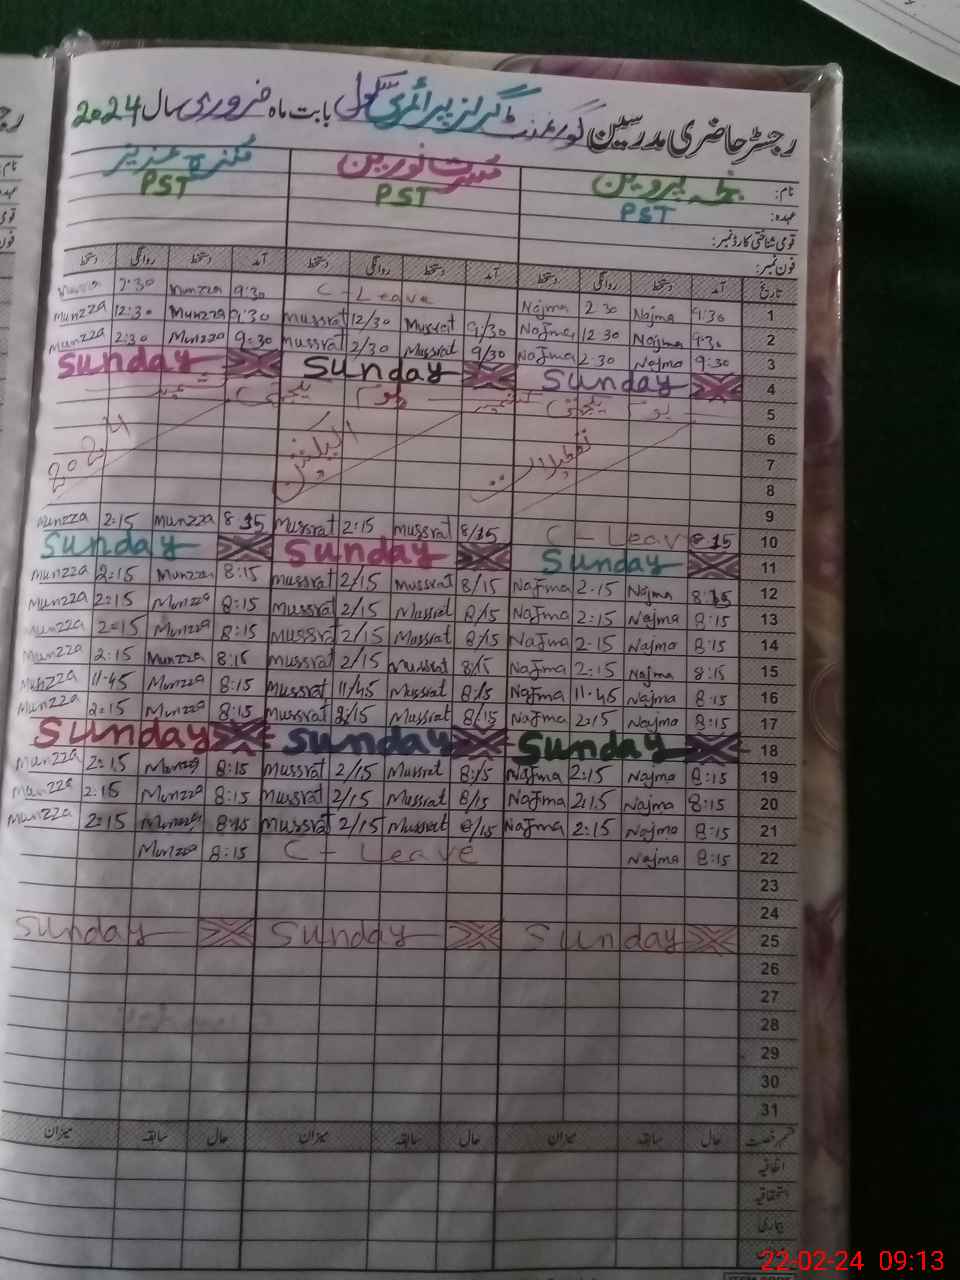 رجسٹر حاضری مدرسین گورنمنٹ گرلز پرائمری سکول بابت ماہ فروری سال 2024
نام: نجمہ پروین مسرت نورین عزیز
عہدہ: PST PST PST
قومی شناختی کارڈ نمبر:
فون نمبر:
تاریخ آمد دستخط روانگی دستخط آمد دستخط روانگی دستخط آمد دستخط روانگی دستخط
1 9:30 Najma 2 30 Najma C - Leave 9:30 Munzza 2:30
2 9:30 Najma 12 30 Najma 9/30 Mussrat 12/30 Mussrat 9:30 Munzza 12:30 Munzza
3 9:30 Najma 2:30 Najma 9/30 Mussrat 2/30 Mussrat 9:30 Munzza 2:30 Munzza
4 Sunday Sunday Sunday
5
6
7 تعطیلات الیکشن 2024
8
9
10 8 15 C - Leave 8/15 mussrat 2:15 Mussrat 8 15 Munzza 2:15 Munzza
11 Sunday Sunday Sunday
12 8:15 Najma 2:15 Najma 8/15 Mussrat 2/15 Mussrat 8:15 Munzza 2:15 Munzza
13 8:15 Najma 2:15 Najma 8/15 Mussrat 2/15 Mussrat 8:15 Munzza 2:15 Munzza
14 8:15 Najma 2-15 Najma 8/15 Mussrat 2/15 Mussrat 8:15 Munzza 2=15 Munzza
15 8:15 Najma 2:15 Najma 8/15 Mussrat 2/15 Mussrat 8:15 Munzza 2:15 Munzza
16 8:15 Najma 11-45 Najma 8/15 Mussrat 11/45 Mussrat 8:15 Munzza 11-45 Munzza
17 8:15 Najma 2:15 Najma 8/15 Mussrat 2/15 Mussrat 8:15 Munzza 2:15 Munzza
18 Sunday Sunday Sunday
19 8:15 Najma 2:15 Najma 8:15 Mussrat 2/15 Mussrat 8:15 Munzza 2:15 Munzza
20 8:15 Najma 2:15 Najma 8/15 Mussrat 2/15 Mussrat 8:15 Munzza 2:15 Munzza
21 8:15 Najma 2:15 Najma 8/15 Mussrat 2/15 Mussrat 8:15 Munzza 2:15 Munzza
22 8:15 Najma C - Leave 8:15 Munzza
23
24
25 Sunday Sunday Sunday
26
27
28
29
30
31
قسم رخصت حال سابقہ میزان حال سابقہ میزان حال سابقہ میزان
اتفاقیہ
استحقاقیہ
بیماری
22-02-24 09:13